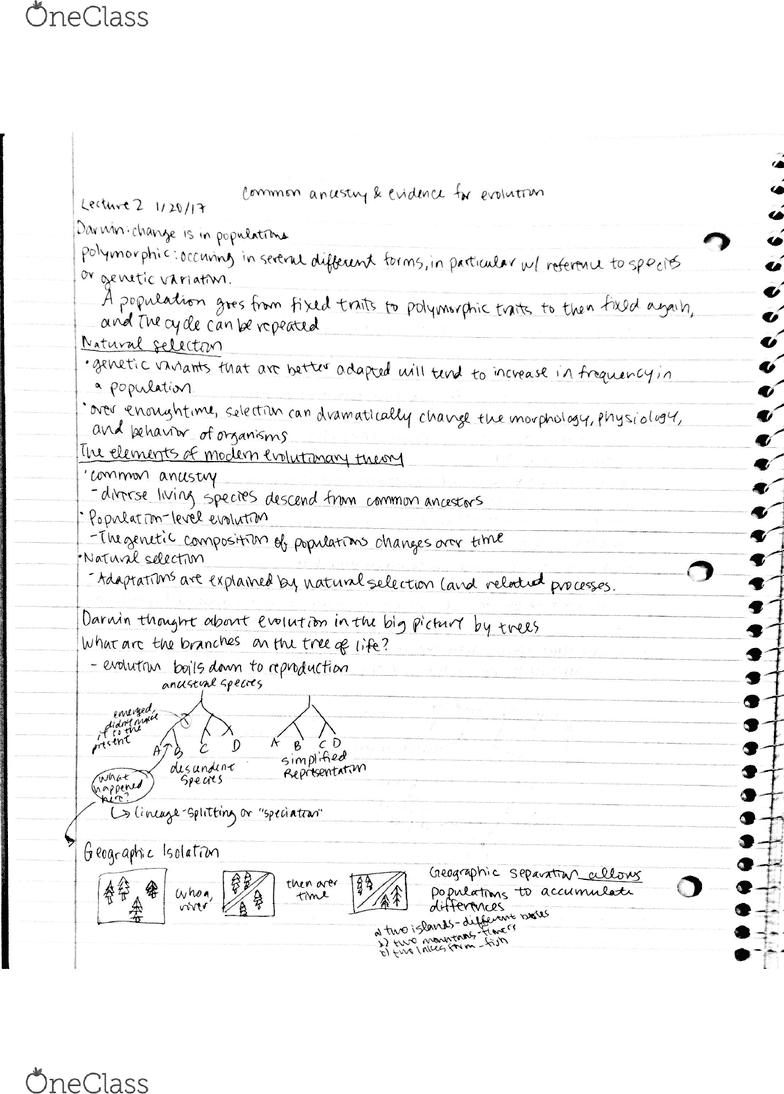 OneClass
common ancestry & evidence for evolution
Lecture 2 1/20/17
Darwin: change is in populations
polymorphic: occuring in several different forms, in particular w/ reference to species
or genetic variation.
A population goes from fixed traits to polymorphic traits to then fixed again,
and the cycle can be repeated
Natural selection
• genetic variants that are better adapted will tend to increase in frequency in
a population
• over enough time, selection can dramatically change the morphology, physiology,
and behavior of organisms
The elements of modern evolutionary theory
• common ancestry
- diverse living species descend from common ancestors
• Population-level evolution
- The genetic composition of populations changes over time
• Natural selection
- Adaptations are explained by natural selection (and related processes.
Darwin thought about evolution in the big picture by trees
What are the branches on the tree of life?
- evolution boils down to reproduction
ancestral species
emerged,
didn't make
it to the
present
A B C D
A B C D
descendent
species
simplified
Representation
What
happened
here?
↳ lineage-splitting or "speciation"
Geographic Isolation
whoa,
river
then over
time
Geographic separation allows
populations to accumulate
differences
two islands - different
two mountains - flowers
two lakes form - fish
OneClass